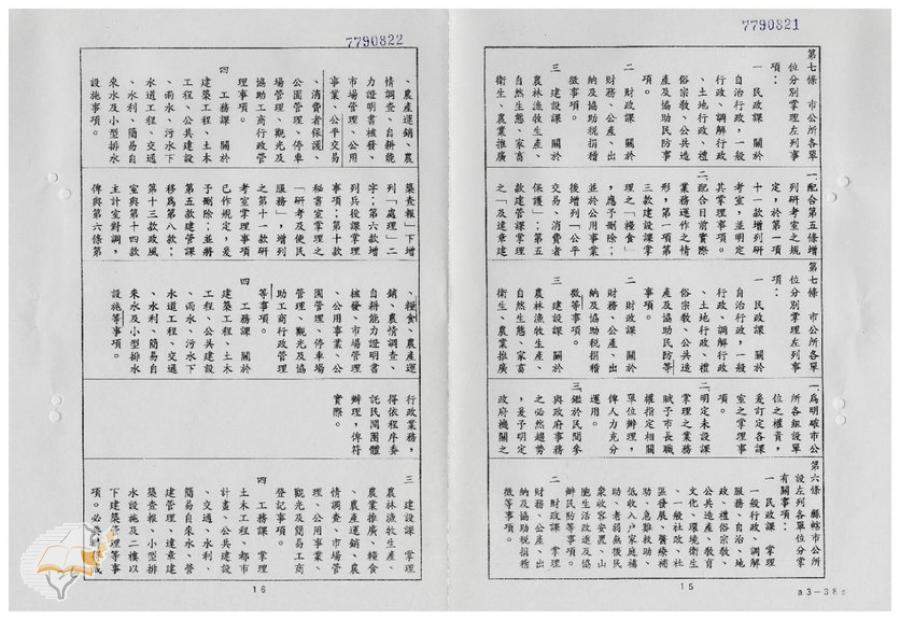 7790821
第七條　市公所各單
位分別掌理左列事
項：
一　民政課　關於
自治行政，一般
行政、調解行政
、土地行政、禮
俗宗教、公共造
產及協助民防事
項。
二　財政課　關於
財務、公產、出
納及協助稅捐稽
徵事項。
三　建設課　關於
農林漁牧生產、
自然生態、家畜
衛生、農業推廣
一、配合第五條增
列研考室之規
定，於第一項
十一款增列研
考室，並明定
其掌理事項。
二、配合目前實際
業務運作之情
形，第一項第
三款建設課掌
理之「糧食」
，應予刪除；
並於公用事業
後增列「公平
交易、消費者
保護」；第五
款建管課掌理
之「及違章建
第七條　市公所各單
位分別掌理左列事
項：
一　民政課　關於
自治行政，一般
行政、調解行政
、土地行政、禮
俗宗教、公共造
產及協助民防等
事項。
二　財政課　關於
財務、公產、出
納及協助稅捐稽
徵等事項。
三　建設課　關於
農林漁牧生產、
自然生態、家畜
衛生、農業推廣
一、為明確市公
所各組設單
位之權責，
爰訂定各課
室之掌理事
項。
二、明定未設課
掌理之業務
賦予市長職
權指定相關
單位辦理，
俾人力充分
運用。
三、鑑於民間參
與政府事務
之必然趨勢
，爰予明定
政府機關之
第六條　縣轄市公所
設左列各單位分掌
有關事項：
一　民政課　掌理
一般行政、調解
服務、自治、地
政、禮俗宗教、
公共造產、教育
文化、環境衛生
、一般社政、社
區發展、醫療補
助、急難救助、
低收入戶家庭補
助、老弱無依民
眾收容安置、山
胞生活改進及協
辦民防等事項。
二　財政課　掌理
財務、公產、出
納及協助稅捐稽
徵等事項。
15
a3－38s
7790822
、農產運銷、農
情調查、自耕能
力證明書核發、
市場管理、公用
事業、公平交易
、消費者保護、
公園管理、停車
場管理、觀光及
協助工商行政管
理事項。
四　工務課　關於
建築工程、土木
工程、公共建設
、雨水、污水下
水道工程、交通
、水利、簡易自
來水及小型排水
設施事項。
築查報」下增
列「處理」二
字；第六款增
列兵役課掌理
事項；第十款
秘書室掌理之
「研考及便民
服務」，增列
之第十一款研
考室掌理事項
已作規定，爰
予刪除；並將
第五款建管課
移為第八款；
第十三款政風
室與第十四款
主計室對調，
俾與第六條第
、糧食、農產運
銷、農情調查、
自耕能力證明書
核發、市場管理
、公用事業、公
園管理、停車場
管理、觀光及協
助工商行政管理
等事項。
四　工務課　關於
建築工程、土木
工程、公共建設
、雨水、污水下
水道工程、交通
、水利、簡易自
來水及小型排水
設施等事項。
行政業務，
得依程序委
託民間團體
辦理，俾符
實際。
三　建設課　掌理
農林漁牧生產、
農業推廣、糧食
、農產運銷、農
情調查、市場管
理、公用事業、
觀光及簡易工商
登記事項。
四　工務課　掌理
土木工程、都市
計畫、公共建設
、交通、水利、
簡易自來水、營
建管理、違章建
築查報、小型排
水設施及二樓以
下建築管理等事
項。必
16